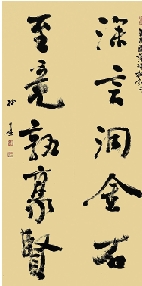 深言洞金石
至竟孰豪賢